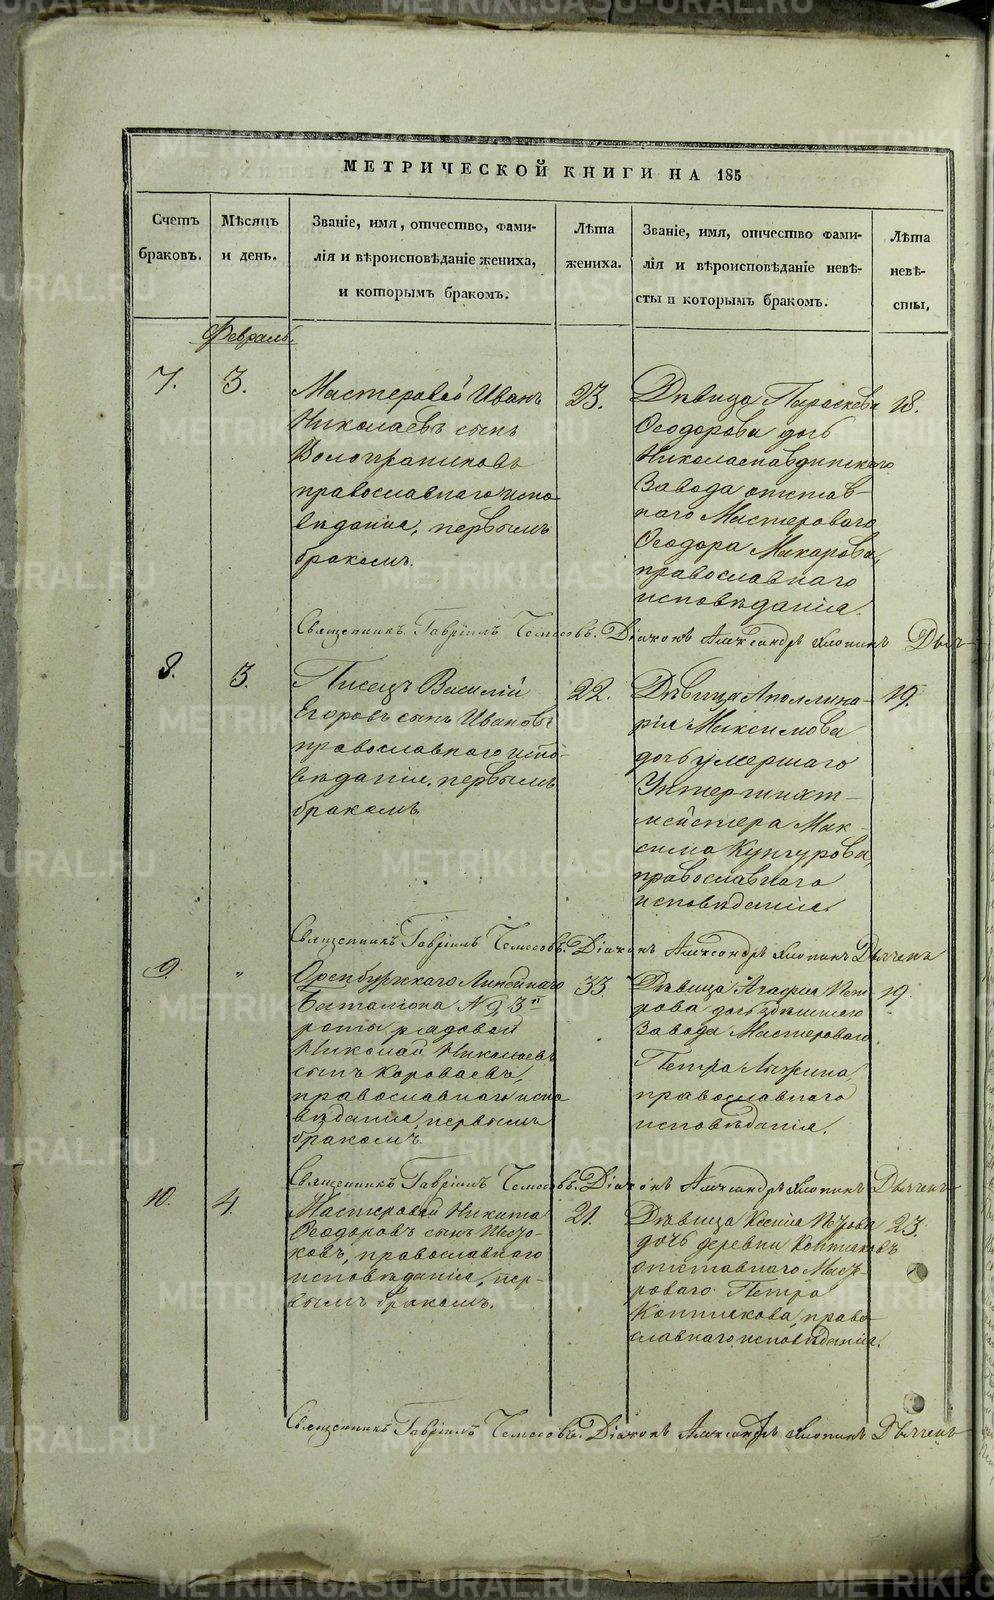 МЕТРИЧЕСКОЙ КНИГИ НА 185
Счетъ
браковъ.
Мѣсяцъ
и день.
Званіе, имя, отчество, фами-
лія и вѣроисповѣданіе жениха,
и которымъ бракомъ.
Лѣта
жениха.
Званіе, имя, отчество фами-
лія и вѣроисповѣданіе невѣ-
сты и которымъ бракомъ.
Лѣта
невѣ-
сты,
Февраль.
7.
3.
Мастеровой Иванъ
Николаевъ сынъ
православнаго испо
вѣданія, первымъ
бракомъ.
23.
Дѣвица Параскева
Ѳеодорова дочь
Николаепавдинскаго
Завода отстав-
наго Мастероваго
Ѳеодора Макарова,
православнаго
исповѣданія.
18.
Священникъ Гавріилъ Діаконъ Александръ Хлопинъ
8.
3.
Писецъ Василій
Егоровъ сынъ Ивановъ
православнаго испо-
вѣданія, первымъ
бракомъ
22.
Дѣвица Аполлина-
рія Максимова
дочь умершаго
Унтершихт-
мейстера Мак-
сима Кунгурова,
православнаго
исповѣданія.
19.
Священникъ Гавріилъ Діаконъ Александръ Хлопинъ
9.
"
Оренбургскаго Линейнаго
Баталіона N 9, 3й
роты рядовой
Николай Николаевъ
сынъ Короваевъ,
православнаго испо
вѣданія, первымъ
бракомъ.
33.
Дѣвица Агафія Пет
рова дочь здѣшняго
Завода Мастероваго
Петра
православнаго
исповѣданія.
19.
Священникъ Гавріилъ Діаконъ Александръ Хлопинъ
10.
4.
Мастеровой Никита
Ѳеодоровъ сынъ
ковъ, православнаго
исповѣданія, пер-
вымъ бракомъ.
21.
Дѣвица Ксенія Петрова
дочь деревни Коптяковъ
отставнаго Масте-
роваго Петра
Коптякова, право-
славнаго исповѣданія.
23.
Священникъ Гавріилъ Діаконъ Александръ Хлопинъ
METRIKI.GASO-URAL.RU